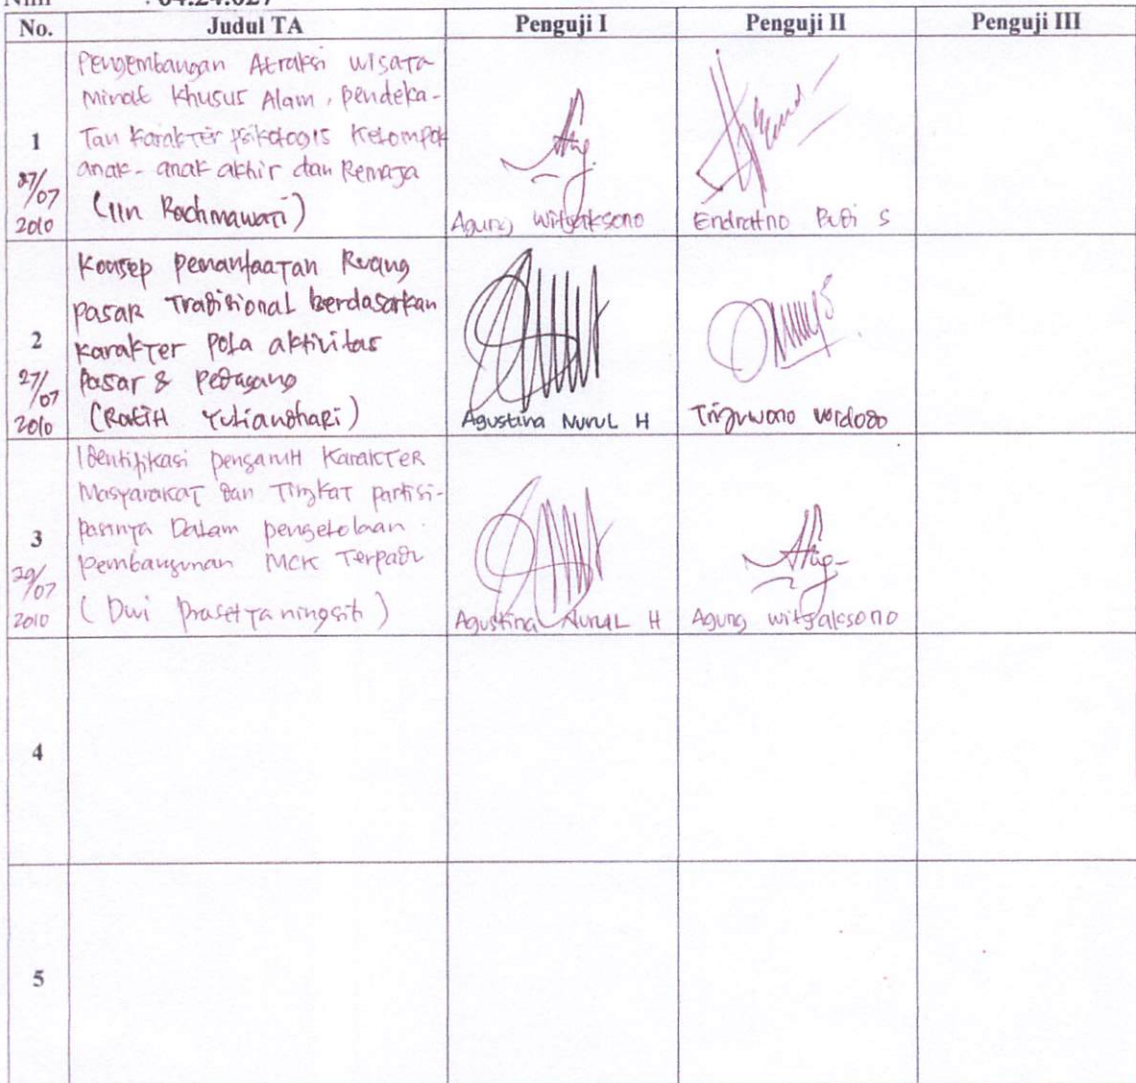 Nim : 04.24.027
No. Judul TA Penguji I Penguji II Penguji III
Pengembangan Atraksi wisata
Minat Khusus Alam, Pendeka-
1 Tan Karakter psikologis Kelompok
anak-anak akhir dan Remaja
27/07 2010 (Iin Rochmawati) Agung witjaksono Endratno Budi S
Konsep Pemanfaatan Ruang
pasar Tradisional berdasarkan
2 karakter pola aktivitas
Pasar & Pedagang
27/07 2010 (Ratih Yuliandhari) Agustina Nurul H
Identifikasi pengaruh Karakter
Masyarakat dan Tingkat partisi-
3 pasinya Dalam pengelolaan
pembangunan MCK Terpadu
29/07 2010 (Dwi Prasetyaningsih) Agustina Nurul H Agung witjaksono
4
5